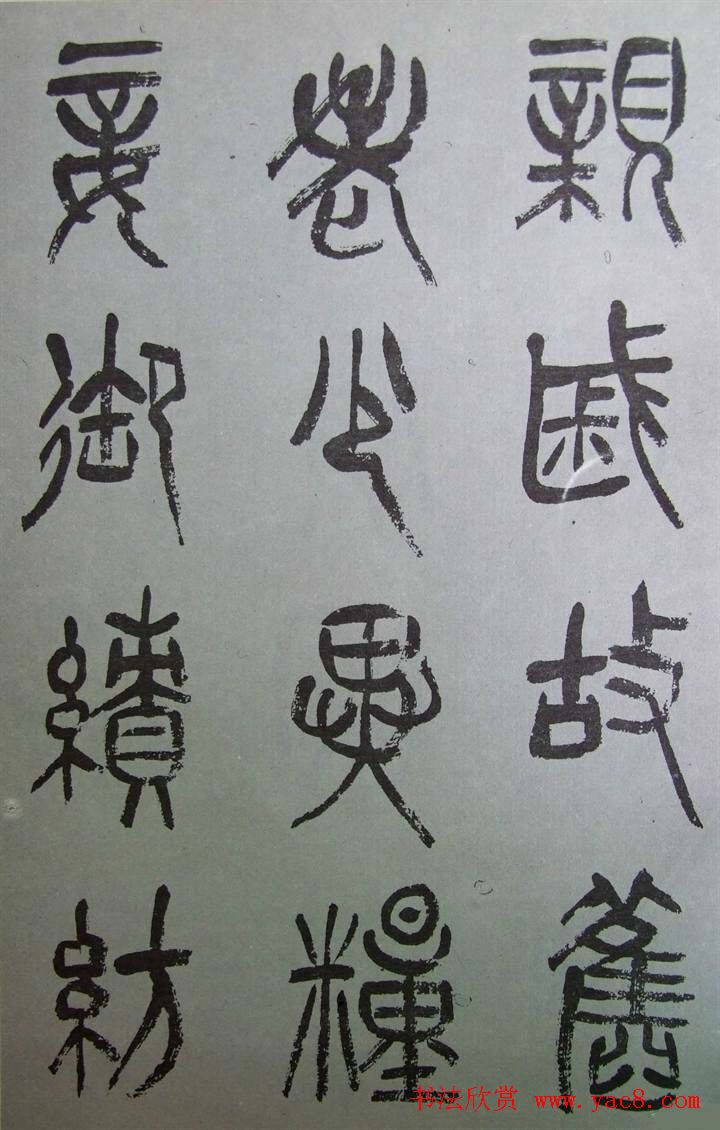 親戚故舊
老少異糧
妾御績紡
书法欣赏 www.yac8.com